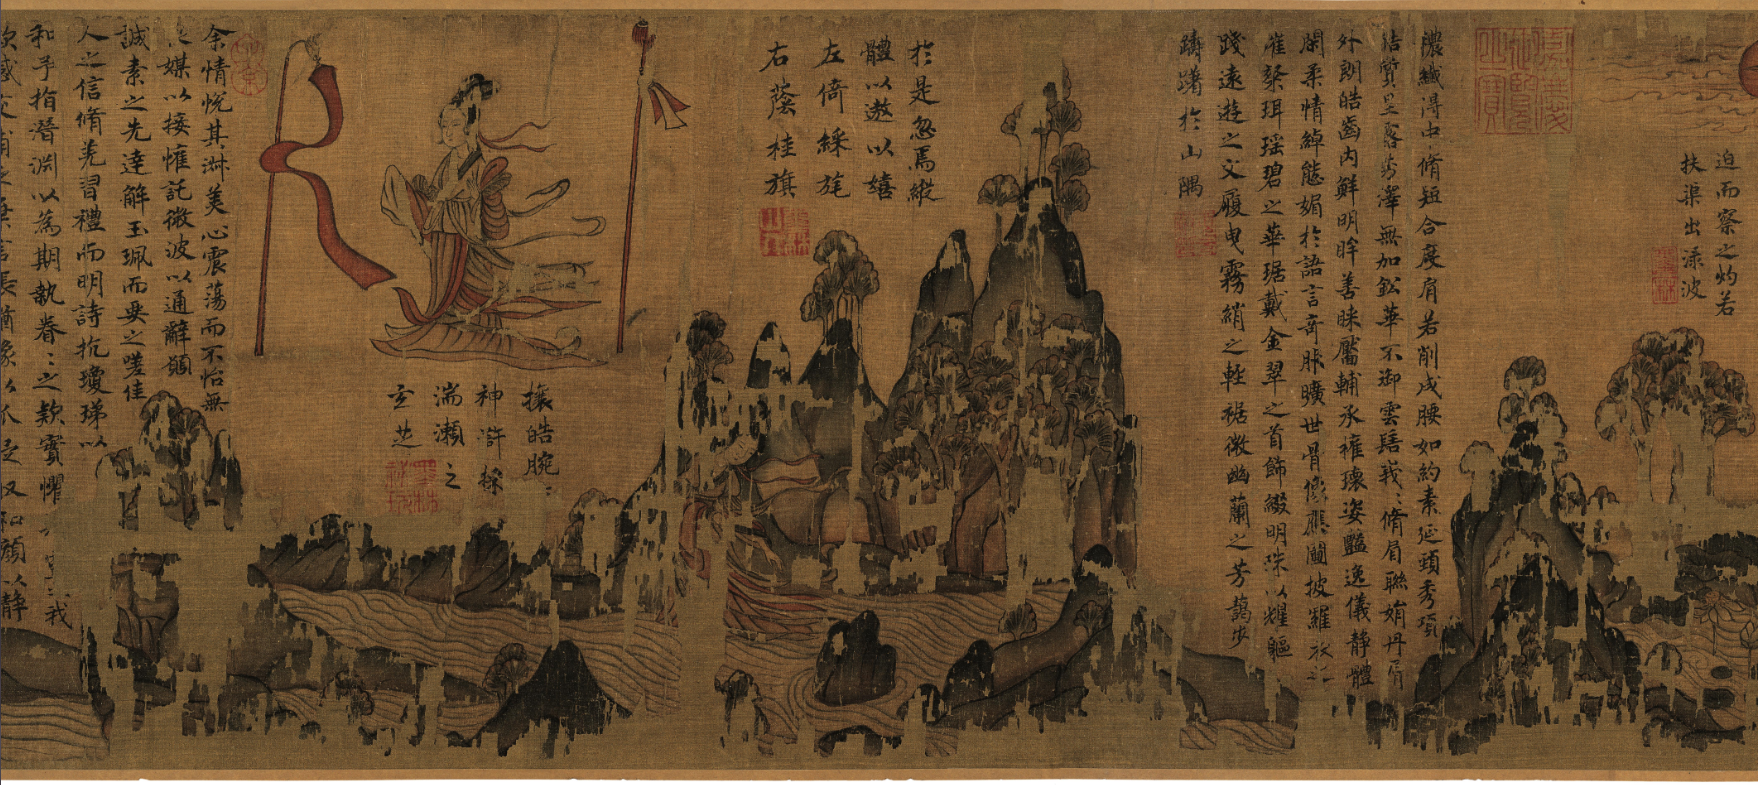 迫而察之灼若
扶渠出淥波
濃纖得中脩短合度肩若削成腰如約素延頸秀項
皓質呈露芳澤無加鈆華不御雲髻峩〻脩眉聯娟丹脣
外朗皓齒內鮮明眸善睞靨輔承權瓌姿豔逸儀靜體
閑柔情綽態媚於語言奇服曠世骨像應圖披羅衣之
璀粲珥瑤碧之華琚戴金翠之首飾綴明珠以耀軀
踐遠遊之文履曳霧綃之輕裾微幽蘭之芳藹步
躊躇於山隅
於是忽焉縱
體以遨以嬉
左倚綵旄
右蔭桂旗
攘皓腕
神滸採
湍瀬之
玄芝
余情悅其淑美心震蕩而不怡無
媒以接懽託微波以通辭願
誠素之先達解玉珮而要之嗟佳
人之信脩羌習禮而明詩抗瓊珶以
和予指潛淵以為期執眷〻之款實懼我
欺感交甫之棄言悵猶豫以狐疑收和顏以靜